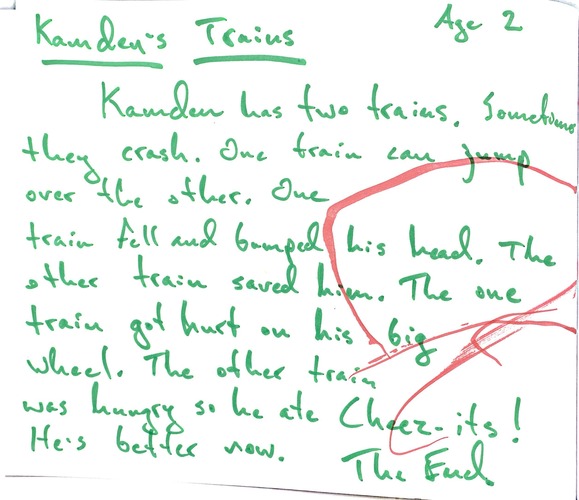 Kamden's Trains Age 2
Kamden has two trains. Sometimes
they crash. One train can jump
over the other. One
train fell and bumped his head. The
other train saved him. The one
train got hurt on his big
wheel. The other train
was hungry so he ate Cheez-its!
He's better now. The End